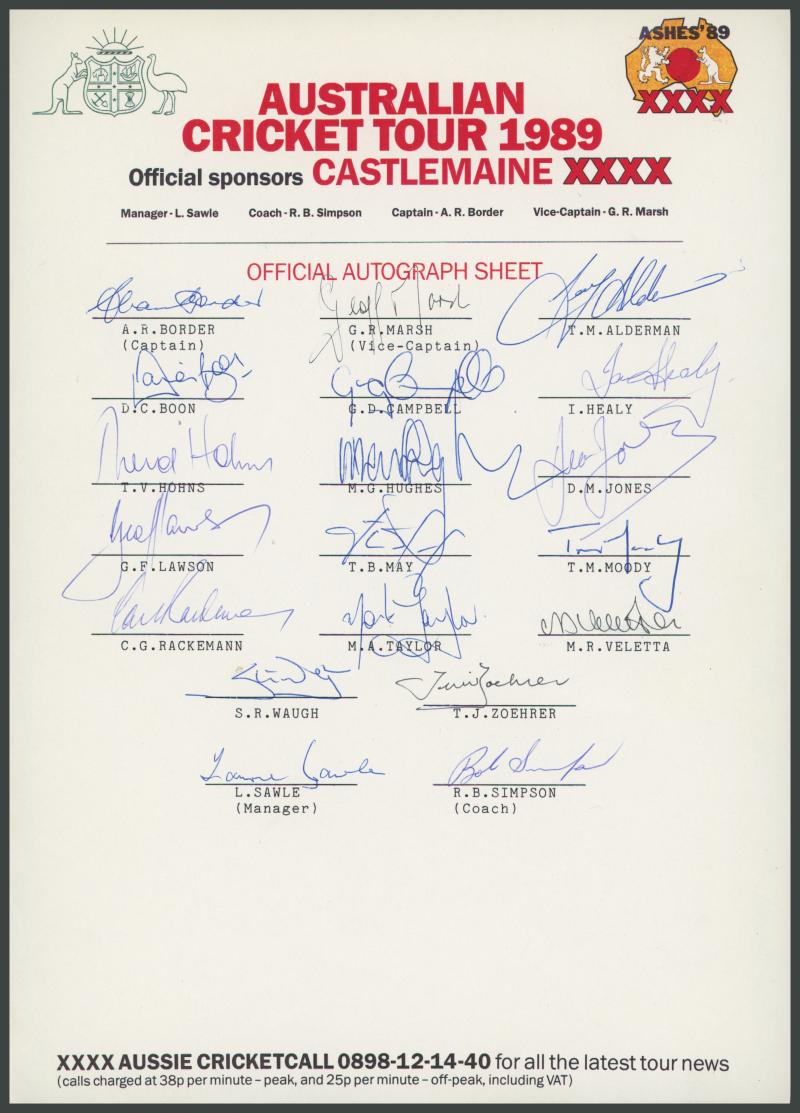 ASHES'89
XXXX
AUSTRALIAN
CRICKET TOUR 1989
Official sponsors CASTLEMAINE XXXX
Manager - L. Sawle Coach - R. B. Simpson Captain - A. R. Border Vice-Captain - G. R. Marsh
OFFICIAL AUTOGRAPH SHEET
Allan Border Geoff R Marsh Terry Alderman
A.R.BORDER G.R.MARSH T.M.ALDERMAN
(Captain) (Vice-Captain)
David Boon Greg Campbell Ian Healy
D.C.BOON G.D.CAMPBELL I.HEALY
Trevor Hohns Merv Hughes Dean Jones
T.V.HOHNS M.G.HUGHES D.M.JONES
Geoff Lawson Tom Moody
G.F.LAWSON T.B.MAY T.M.MOODY
Carl Rackemann Mark Taylor M Veletta
C.G.RACKEMANN M.A.TAYLOR M.R.VELETTA
Tim Zoehrer
S.R.WAUGH T.J.ZOEHRER
Laurie Sawle Bob Simpson
L.SAWLE R.B.SIMPSON
(Manager) (Coach)
XXXX AUSSIE CRICKETCALL 0898-12-14-40 for all the latest tour news
(calls charged at 38p per minute – peak, and 25p per minute – off-peak, including VAT)